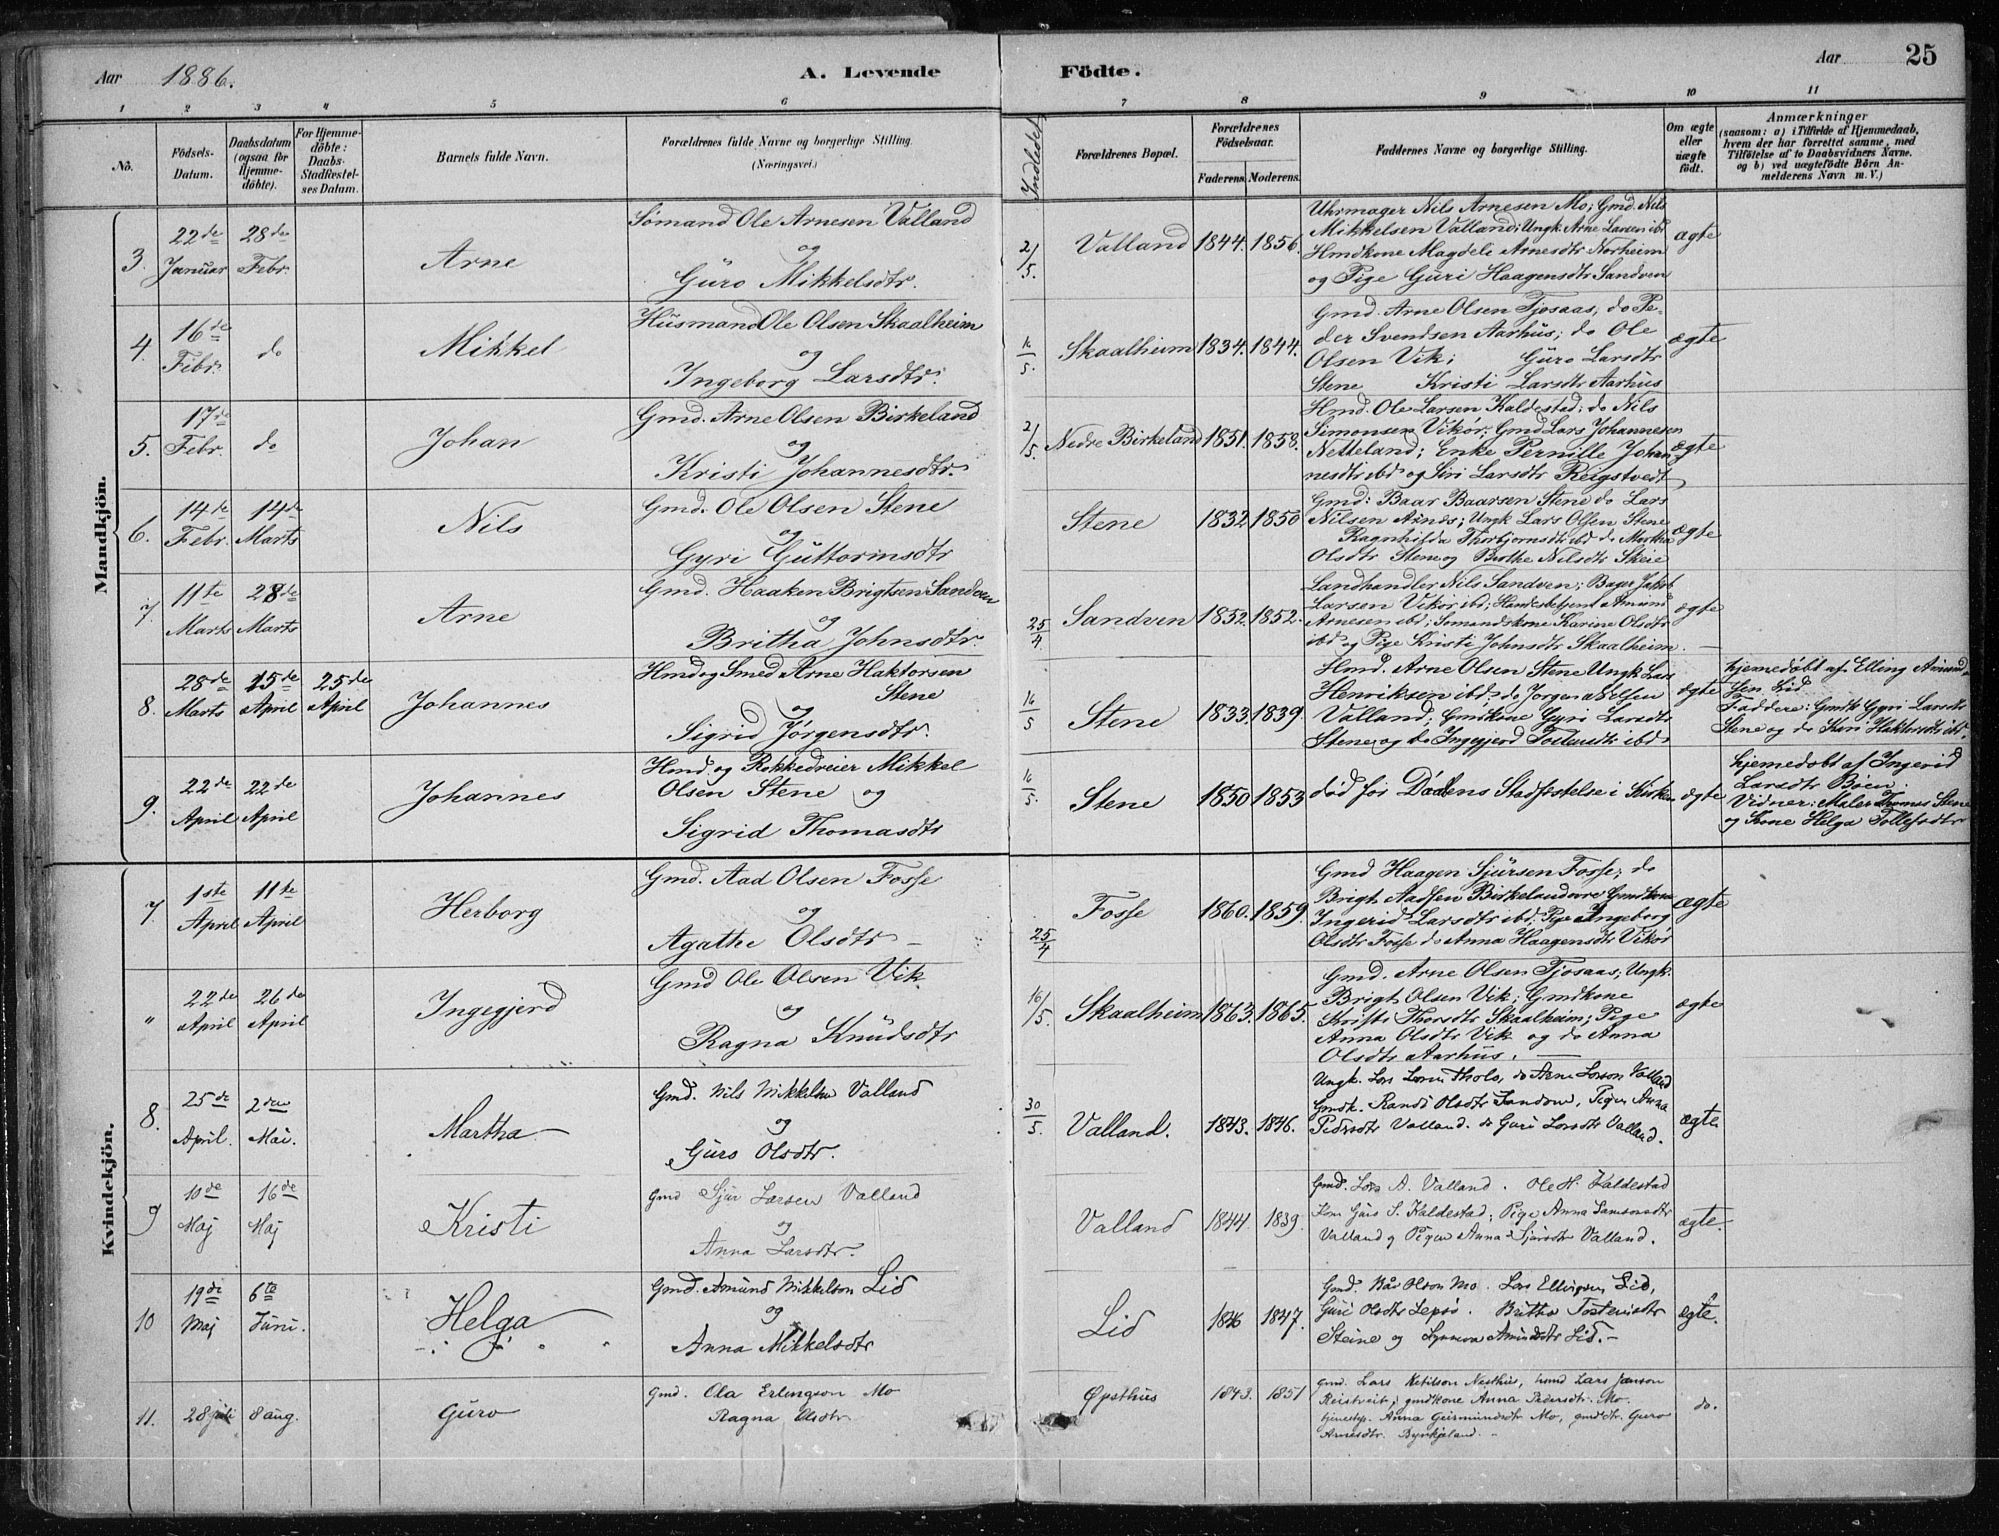 Aar 1886. A. Levende Födte. Aar 25
1 2 3 4 5 6 7 8 9 10 11
No. Födsels-Datum. Daabsdatum (ogsaa för Hjemme-döbte). For Hjemme-döbte: Daabs-Stadfæstel-ses Datum. Barnets fulde Navn. Forældrenes fulde Navne og borgerlige Stilling. (Næringsvei.) Indledet Forældrenes Bopæl. Forældrenes Födselsaar. Faderens. Moderens. Faddernes Navne og borgerlige Stilling. Om ægte eller uægte født. Anmærkninger (saasom: a) i Tilfælde af Hjemmedaab, hvem der har forrettet samme, med Tilföielse af to Daabsvidners Navne. og b) ved uægtefödte Börn An-melderens Navn m. V.)
Mandkjön.
3. 22de Januar 28de Febr. Arne
Sömand Ole Arnesen Valland
og
Guro Mikkelsdtr.
2/5. Valland 1844. 1856.
Uhrmager Nils Arnesen Mo; Gmd. Nils
Mikkelsen Valland; Ungk. Arne Larsen ibd
Hmdkone Magdeli Arnesdtr Norheim
og Pige Guri Haagensdtr Sandven
ægte
4. 16de Febr. do Mikkel
Husmand Ole Olsen Skaalheim
og
Ingeborg Larsdtr.
16/5. Skaalheim 1834. 1844.
Gmd. Arne Olsen Tjosaas; do Pe-
der Svendsen Aarhus; do Ole
Olsen Vik; Guro Larsdtr
Stene Kristi Larsdtr Aarhus
ægte
5. 17de Febr. do Johan
Gmd. Arne Olsen Birkeland
og
Kristi Johannesdtr
2/5. Nedre Birkeland 1851. 1858.
Hmd. Ole Larsen Kaldestad; do Nils
Simonsen Vikør; Gmd Lars Johannesen
Netteland; Enke Pernille Johan-
nesdtr ibd og Siri Larsdtr Reigstvedt
ægte
6. 14de Febr. 14de Marts Nils
Gmd. Ole Olsen Stene
og
Gyri Guttormsdtr
Stene 1832 1850
Gmd: Baar Baarsen Stene do Lars
Nilsen Axnes; Ungk Lars Olsen Stene
Ragnhilda Thorbjornsdtr ibd do Martha
Olsdtr Stene og Berthe Nilsdtr Skeie
ægte
7. 11te Marts 28de Marts Arne
Gmd. Haaken Brigtsen Sandven
og
Britha Johnsdtr.
25/4 Sandven 1852. 1852.
Landhandler Nils Sandven; Bager Jakob
Larsen Vikør ibd; Handesbetjent Amund
Arnesen ibd; Sømandskone Karine Olsdtr
ibd og Pige Kristi Johnsdtr Skaalheim.
ægte
8. 28de Marts 15de April 25de April Johannes
Hmd og Smed Arne Haktorsen
Stene
og
Sigrid Jørgensdtr.
16/5 Stene 1833. 1839.
Hmd. Arne Olsen Stene Ungk Lars
Henriksen ibd; do Jørgen Nelsen
Valland; Gmdkone Gyri Larsdtr
Stene og do Ingegjerd Tostensdtr ibd.
ægte
hjemedøbt af Elling Amund-
sen Lid
Faddere: Gmdk Gyri Larsdtr
Stene og do Kari Haktorsdtr ibd.
9. 22de April 22de April Johannes
Hmd. og Rokkedreier Mikkel
Olsen Stene og
Sigrid Thomasdtr
16/5. Stene 1850 1853
død før Daabens Stadfestelse i Kirken
ægte
hjemedøbt af Ingerid
Larsdtr Bøen.
Vidner: Maler Thomas Stene
og Kone Helga Tollefsdtr
Kvindekjön.
7. 1ste April 11te April Herborg
Gmd. Aad Olsen Fosse
og
Agathe Olsdtr
25/4 Fosse 1860. 1859.
Gmd Haagen Sjursen Fosse; do
Brigt Aadsen Birkeland øvre Gmdkone
Ingerid Larsdtr ibd. Pige Ingeborg
Olsdtr Fosse do Anna Haagensdtr Vikør
ægte
" 22de April 26de April Ingegjerd
Gmd Ole Olsen Vik.
og
Ragna Knudsdtr
16/5. Skaalheim 1863. 1865.
Gmd. Arne Olsen Tjosaas; Ungk.
Brigt Olsen Vik; Gmdkone
Kristi Thorsdtr Skaalheim; Pige
Anna Olsdtr Vik og do Anna
Olsdtr Aarhus.
ægte
8. 25de April. 2den Mai. Martha
Gmd. Nils Mikkelsen Valland
og
Guro Olsdtr.
30/5. Valland. 1843. 1846.
Ungk. Lars Larsen Tholo, do Arne Larson Valland
Gmdk. Randi Olsdtr Sandven, Pigen Anna
Pedersdtr Valland. do Guri Larsdtr Valland.
ægte.
9 10de Maj 16de Maj Kristi
Gmd Sjur Larsen Valland
og
Anna Larsdtr.
Valland 1844. 1839.
Gmd. Lars A. Valland. Ole H. Kaldestad
Kone Guro S. Kaldestad; Pige Anna Samsonsdtr
Valland og Pigen Anna Sjursdtr Valland.
ægte.
10 19de Maj 6te Juni. Helga
Gmd. Amund Mikkelson Lid
og
Anna Mikkelsdtr
Lid 1846 1847.
Gmd. Baar Olson Mo. Lars Ellingsen Lid,
Guri Olsdtr Lepsø. Britha Torstensdtr
Steine og Synneva Amundsdtr Lid.
ægte.
11. 28 juli 8 aug. Guro
Gmd. Ola Erlingson Mo
Ragna Olsdtr
Øpsthus 1843. 1851
Gmd. Lars Ketilson Nesthus, hmd Lars Janson
Reistveit; gmdkone Anna Pedersdtr. Mo.
tjenestp. Anna Geirmundsdtr Mo, gmddtr. Guro
Arnesdtr. Byrkjeland.
do.